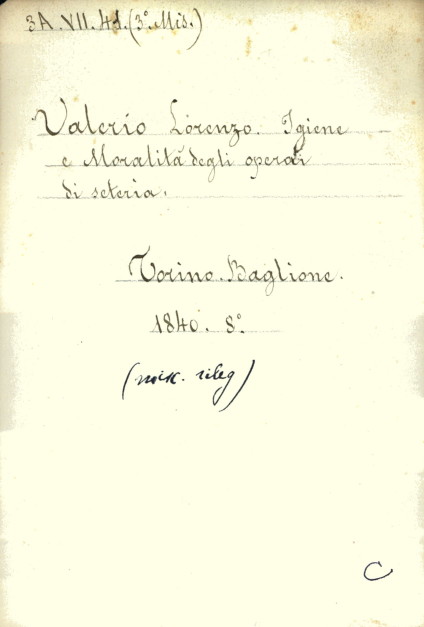 3A.VII.41.(3º Mis.)
Valerio Lorenzo. Igiene
e Moralità degli operai
di seteria.
Torino. Baglione.
1840. 8º.
(misc. rileg)
C